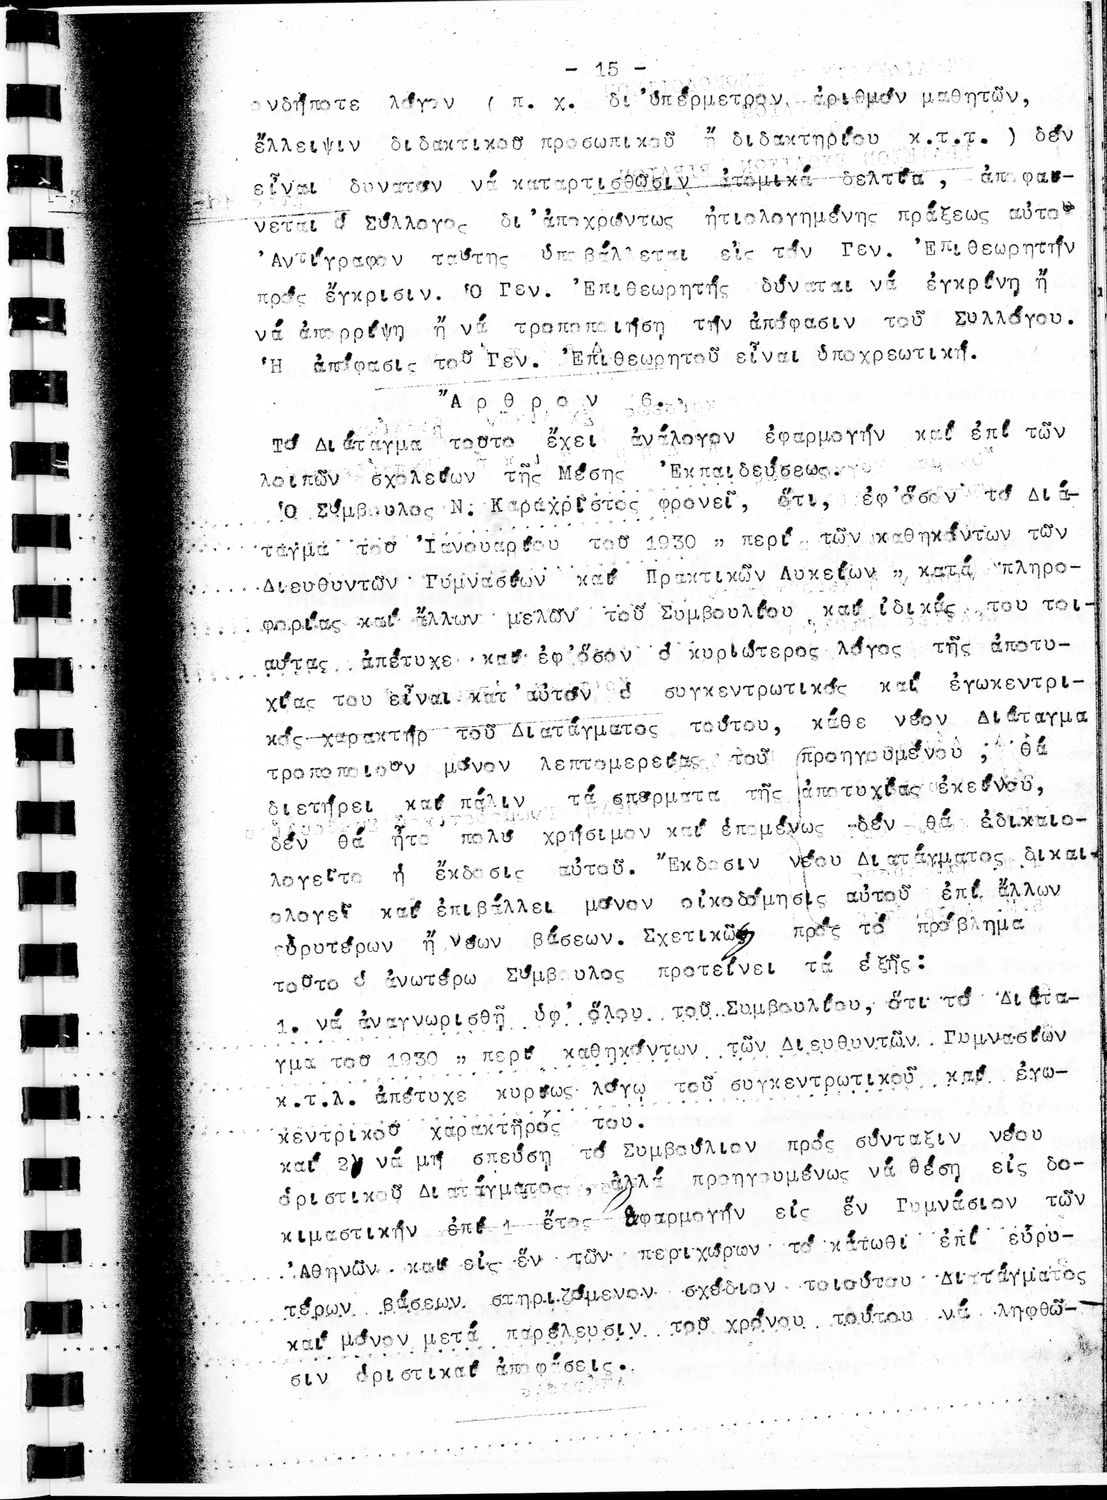 - 15 -
ονδήποτε λόγον ( π. χ. δι'ὑπέρμετρον ἀριθμόν μαθητῶν,
ἔλλειψιν διδακτικοῦ προσωπικοῦ ἤ διδακτηρίου κ.τ.τ. ) δέν
εἶναι δυνατόν νά καταρτισθῶσιν ἀτομικά δελτία, ἀποφαι-
νεται ὁ Σύλλογος δι'ἀποχρώντως ἠτιολογημένης πράξεως αὐτοῦ
'Αντίγραφον ταύτης ὑποβάλλεται εἰς τόν Γεν. 'Επιθεωρητήν
πρός ἔγκρισιν. Ὁ Γεν. 'Επιθεωρητής δύναται νά ἐγκρίνῃ ἤ
νά ἀπορρίψῃ ἤ νά τροποποιήσῃ τήν ἀπόφασιν τοῦ Συλλόγου.
Ἡ ἀπόφασις τοῦ Γεν. 'Επιθεωρητοῦ εἶναι ὑποχρεωτική.
"Α ρ θ ρ ο ν 6.
Τό Διάταγμα τοῦτο ἔχει ἀνάλογον ἐφαρμογήν καί ἐπί τῶν
λοιπῶν σχολείων τῆς Μέσης 'Εκπαιδεύσεως.
Ὁ Σύμβουλος Ν. Καραχρίστος φρονεῖ, ὅτι, ἐφ'ὅσον τό Διά-
ταγμα τοῦ 'Ιανουαρίου τοῦ 1930 " περί τῶν καθηκόντων τῶν
Διευθυντῶν Γυμνασίων καί Πρακτικῶν Λυκείων " κατά πληρο-
φορίας καί ἄλλων μελῶν τοῦ Συμβουλίου καί ἰδικάς του τοι-
αύτας ἀπέτυχε καί ἐφ'ὅσον ὁ κυριώτερος λόγος τῆς ἀποτυ-
χίας του εἶναι κατ'αὐτόν ὁ συγκεντρωτικός καί ἐγωκεντρι-
κός χαρακτήρ τοῦ Διατάγματος τούτου, κάθε νέον Διάταγμα
τροποποιοῦν μόνον λεπτομερείας τοῦ προηγουμένου ; θά
διετήρει καί πάλιν τά σπέρματα τῆς ἀποτυχίας ἐκείνου,
δέν θά ἦτο πολύ χρήσιμον καί ἑπομένως δέν θά ἐδικαιο-
λογεῖτο ἡ ἔκδοσις αὐτοῦ. "Εκδοσιν νέου Διατάγματος δικαι-
ολογεῖ καί ἐπιβάλλει μόνον οἰκοδόμησις αὐτοῦ ἐπί ἄλλων
εὐρυτέρων ἤ νέων βάσεων. Σχετικῶς πρός τό πρόβλημα
τοῦτο ὁ ἀνωτέρω Σύμβουλος προτείνει τά ἑξῆς:
1. νά ἀναγνωρισθῇ ὑφ' ὅλου τοῦ Συμβουλίου, ὅτι τό Διάτα-
γμα τοῦ 1930 " περί καθηκόντων τῶν Διευθυντῶν Γυμνασίων
κ.τ.λ. ἀπέτυχε κυρίως λόγῳ τοῦ συγκεντρωτικοῦ καί ἐγω-
κεντρικοῦ χαρακτῆρός του.
καί 2) νά μή σπεύσῃ τό Συμβούλιον πρός σύνταξιν νέου
ὁριστικοῦ Διατάγματος, ἀλλά προηγουμένως νά θέσῃ εἰς δο-
κιμαστικήν ἐπί 1 ἔτος ἐφαρμογήν εἰς ἕν Γυμνάσιον τῶν
'Αθηνῶν καί εἰς ἕν τῶν περιχώρων τό κάτωθι ἐπί εὐρυ-
τέρων βάσεων στηριζόμενον σχέδιον τοιούτου Διατάγματος
καί μόνον μετά παρέλευσιν τοῦ χρόνου τούτου νά ληφθῶ-
σιν ὁριστικαί ἀποφάσεις.